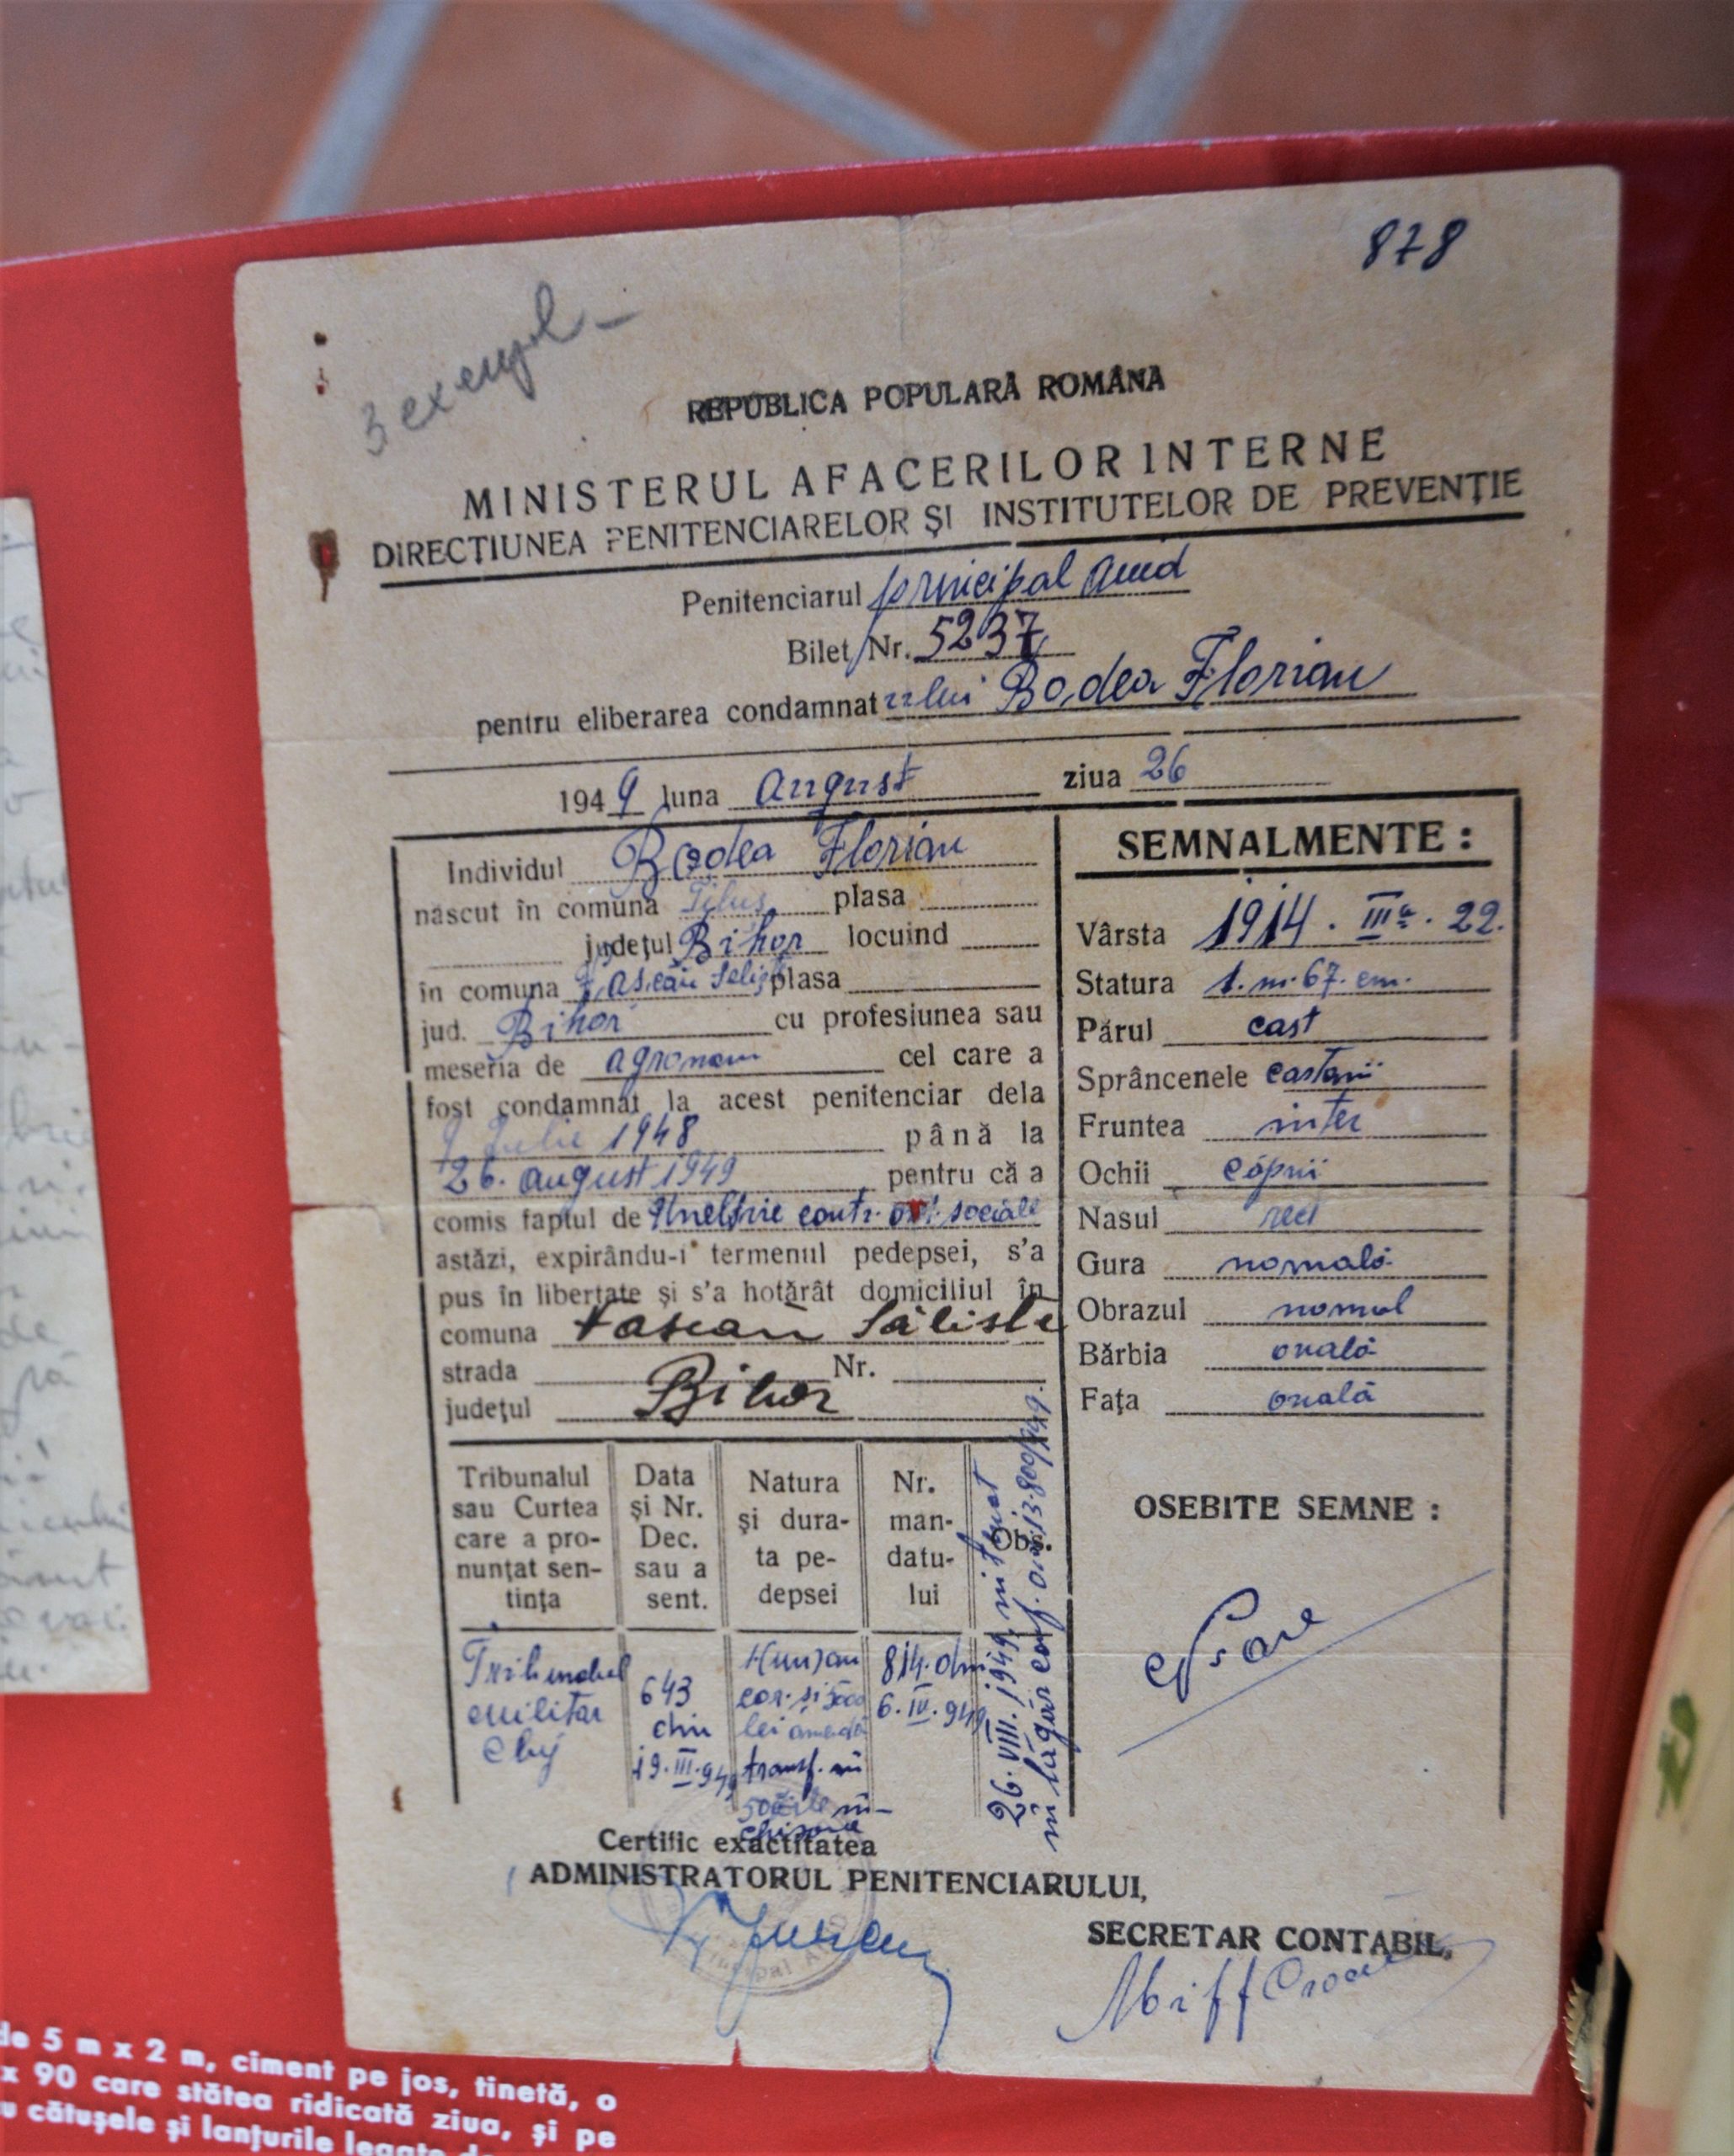 878
3 exempl
REPUBLICA POPULARĂ ROMÂNA
MINISTERUL AFACERILOR INTERNE
DIRECȚIUNEA PENITENCIARELOR ȘI INSTITUTELOR DE PREVENȚIE
Penitenciarul principal Aiud
Bilet Nr. 5237
pentru eliberarea condamnat ului Bodea Florian
1949 luna August ziua 26
Individul Bodea Florian
născut în comuna plasa
județul Bihor locuind
în comuna plasa
jud. Bihor cu profesiunea sau
meseria de agronom cel care a
fost condamnat la acest penitenciar dela
9 Iulie 1948 până la
26. August 1949 pentru că a
comis faptul de Uneltire contr. ord. sociale
astăzi, expirându-i termenul pedepsei, s'a
pus în libertate și s'a hotărât domiciliul în
comuna
strada Nr.
județul Bihor
SEMNALMENTE :
Vârsta 1914. IIIa. 22.
Statura 1. m. 67. cm.
Părul cast
Sprâncenele castanii
Fruntea inter
Ochii căprii
Nasul rect
Gura normală
Obrazul normal
Bărbia ovală
Fața ovală
OSEBITE SEMNE :
Tribunalul
sau Curtea
care a pro-
nunțat sen-
tința
Data
și Nr.
Dec.
sau a
sent.
Natura
și dura-
ta pe-
depsei
Nr.
man-
datu-
lui
Obs.
Tribunalul
militar
Cluj
643
din
19. III. 949
1 (un) an
cor. și 5000
lei amendă
transf. în
închisoare
814. din
6. IV. 949
26. VIII. 1949
în lagăr conf. ord. 13.800/949.
Certific exactitatea
ADMINISTRATORUL PENITENCIARULUI,
SECRETAR CONTABIL,
de 5 m x 2 m, ciment pe jos, tinetă, o
x 90 care stătea ridicată ziua, și pe
u cătușele și lanțurile legate de